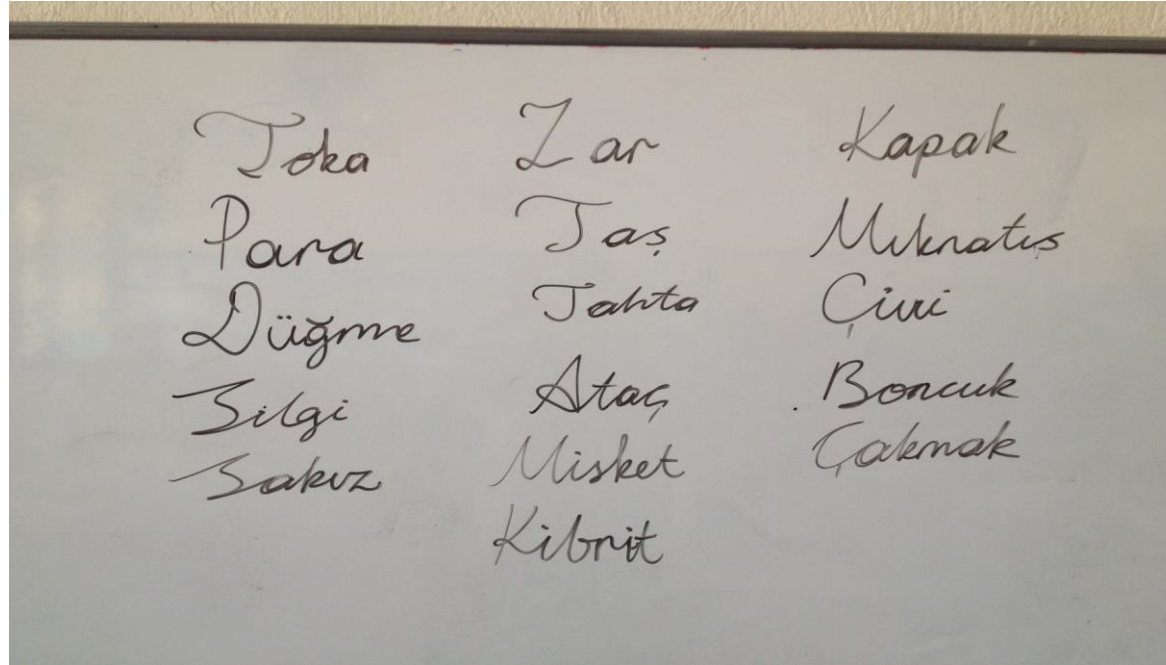 Toka
Para
Düğme
Silgi
Sakız
Zar
Taş
Tahta
Ataç
Misket
Kibrit
Kapak
Mıknatıs
Çivi
Boncuk
Çakmak